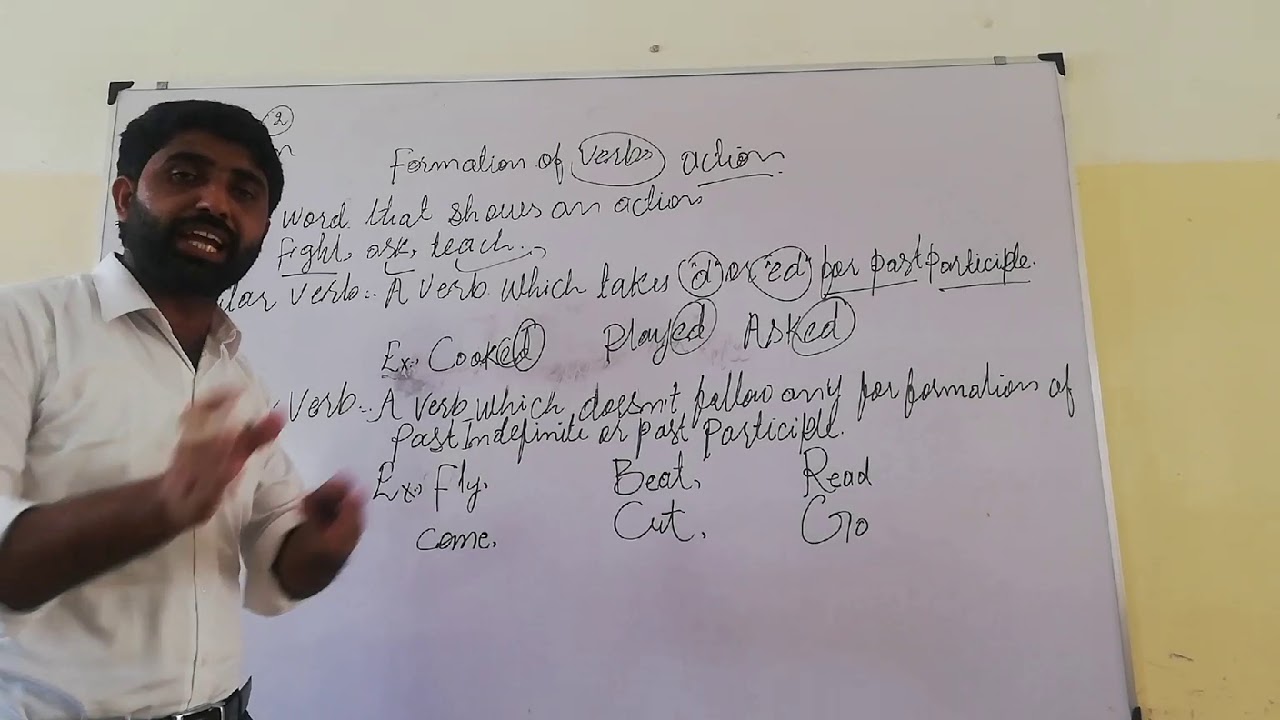 2
Formation of Verbs action
word that shows an action
fight, ask, teach..
ular Verb:. A verb which takes "d" or "ed" for past participle.
Ex: Cooked Played Asked
Verb:. A verb which doesn't follow any for formation of
Past Indefinite or past participle.
Ex, Fly, Beat, Read
Come, Cut, Go